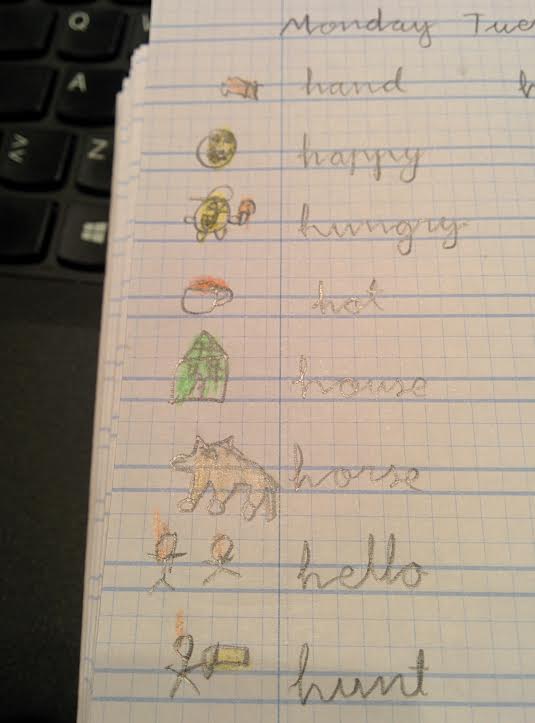 Q
A
Z
Monday Tue
hand
happy
hungry
hot
house
horse
hello
hunt